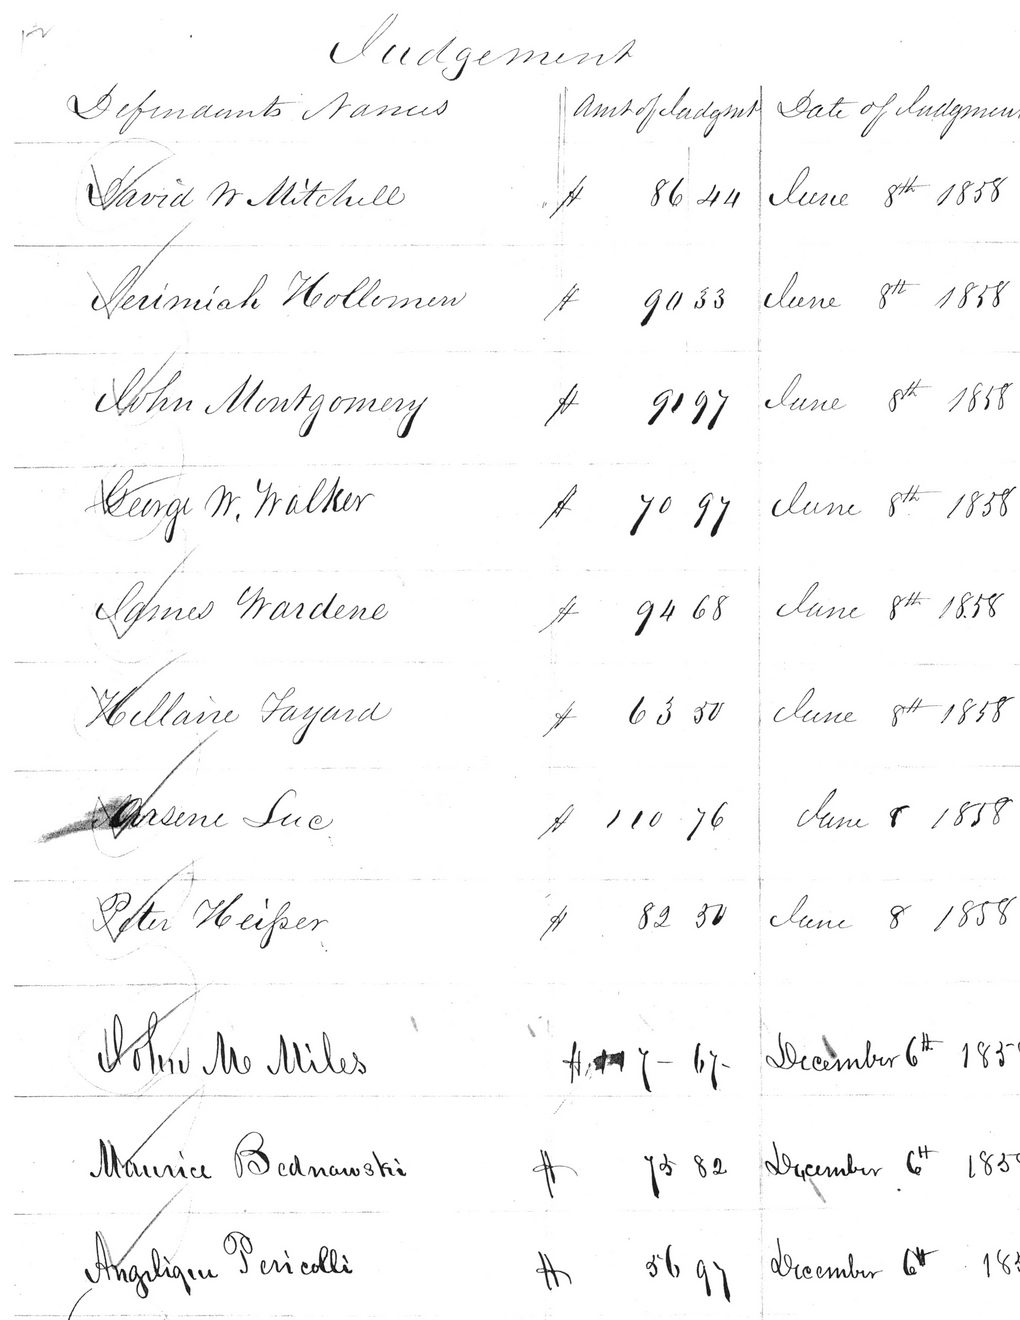 Judgement
Defendants Names Amt of Judgmt Date of Judgment
David W Mitchell $ 86 44 June 8th 1858
Jerimiah Hollomen $ 90 33 June 8th 1858
John Montgomery $ 91 97 June 8th 1858
George W. Walker $ 70 97 June 8th 1858
James Wardene $ 94 68 June 8th 1858
Hellaire Fayard $ 63 50 June 8th 1858
Arsene Luc $ 110 76 June 8 1858
Peter Heißer $ 82 50 June 8 1858
John M Miles $ 7 – 67 - December 6th 185
Maurice Bednawski $ 75 82 December 6th 185
Angelique Pericolli $ 56 97 December 6th 185